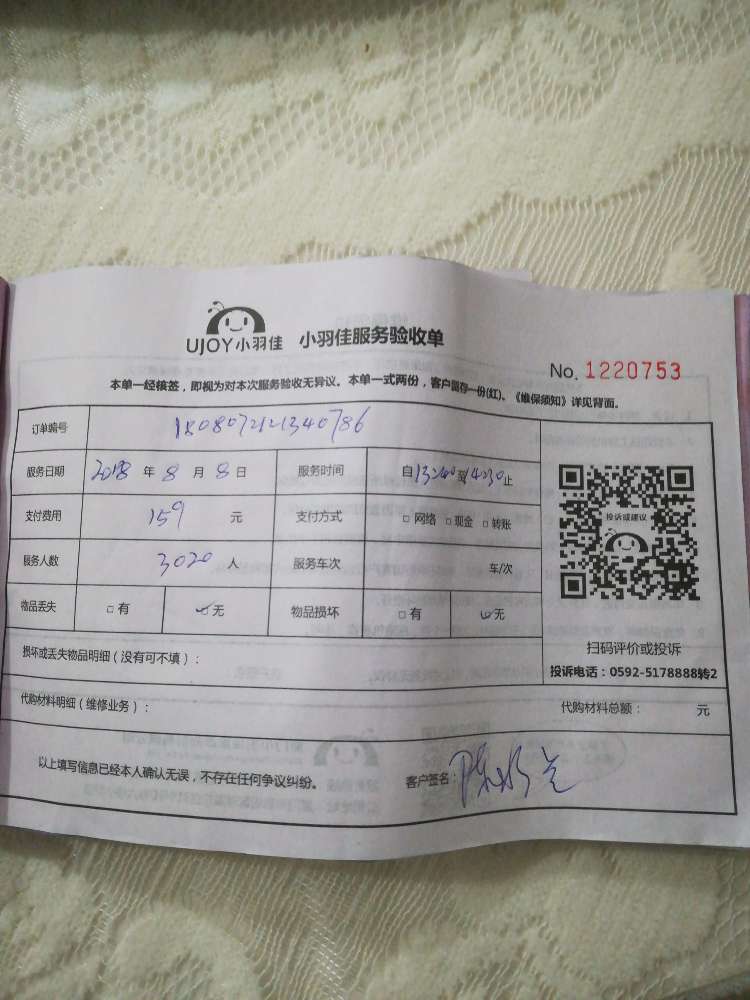 UJOY小羽佳 小羽佳服务验收单
No. 1220753
本单一经核签，即视为对本次服务验收无异议。本单一式两份，客户留存一份(红)。《维保须知》详见背面。
订单编号 1808072121340786
服务日期 2018 年 8 月 8 日 服务时间 自13:40至14:30止
支付费用 159 元 支付方式 □ 网络 □ 现金 □ 转账
服务人数 3020 人 服务车次 车/次
物品丢失 □ 有 ✓无 物品损坏 □ 有 ✓无
投诉或建议
扫码评价或投诉
投诉电话：0592-5178888转2
损坏或丢失物品明细（没有可不填）：
代购材料明细（维修业务）： 代购材料总额： 元
以上填写信息已经本人确认无误，不存在任何争议纠纷。 客户签名：陈